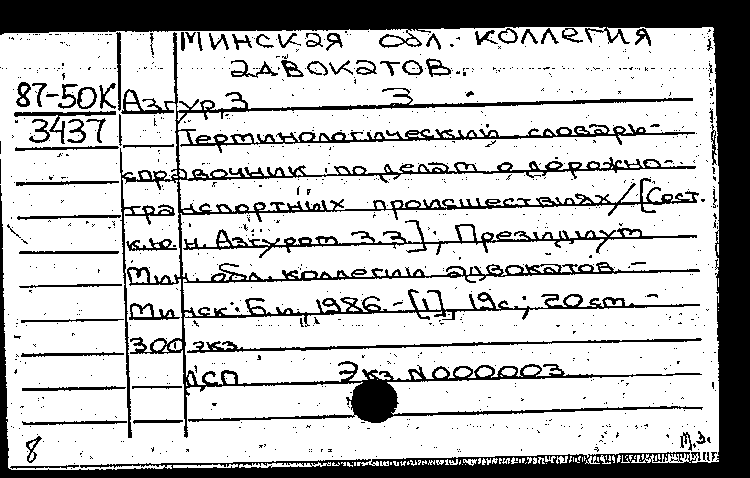 Минская обл. коллегия
адвокатов.
87-50К Азгур, З З
3437 Терминологический словарь-
справочник по делам о дорожно-
транспортных происшествиях/[Сост.
к.ю.н. Азгуром З.З.]; Президиум
Мин. обл. коллегии адвокатов. -
Минск: Б.и., 1986. - [1], 19с.; 20 см. -
300 экз.
ДСП Экз. N000003
8 М.З.